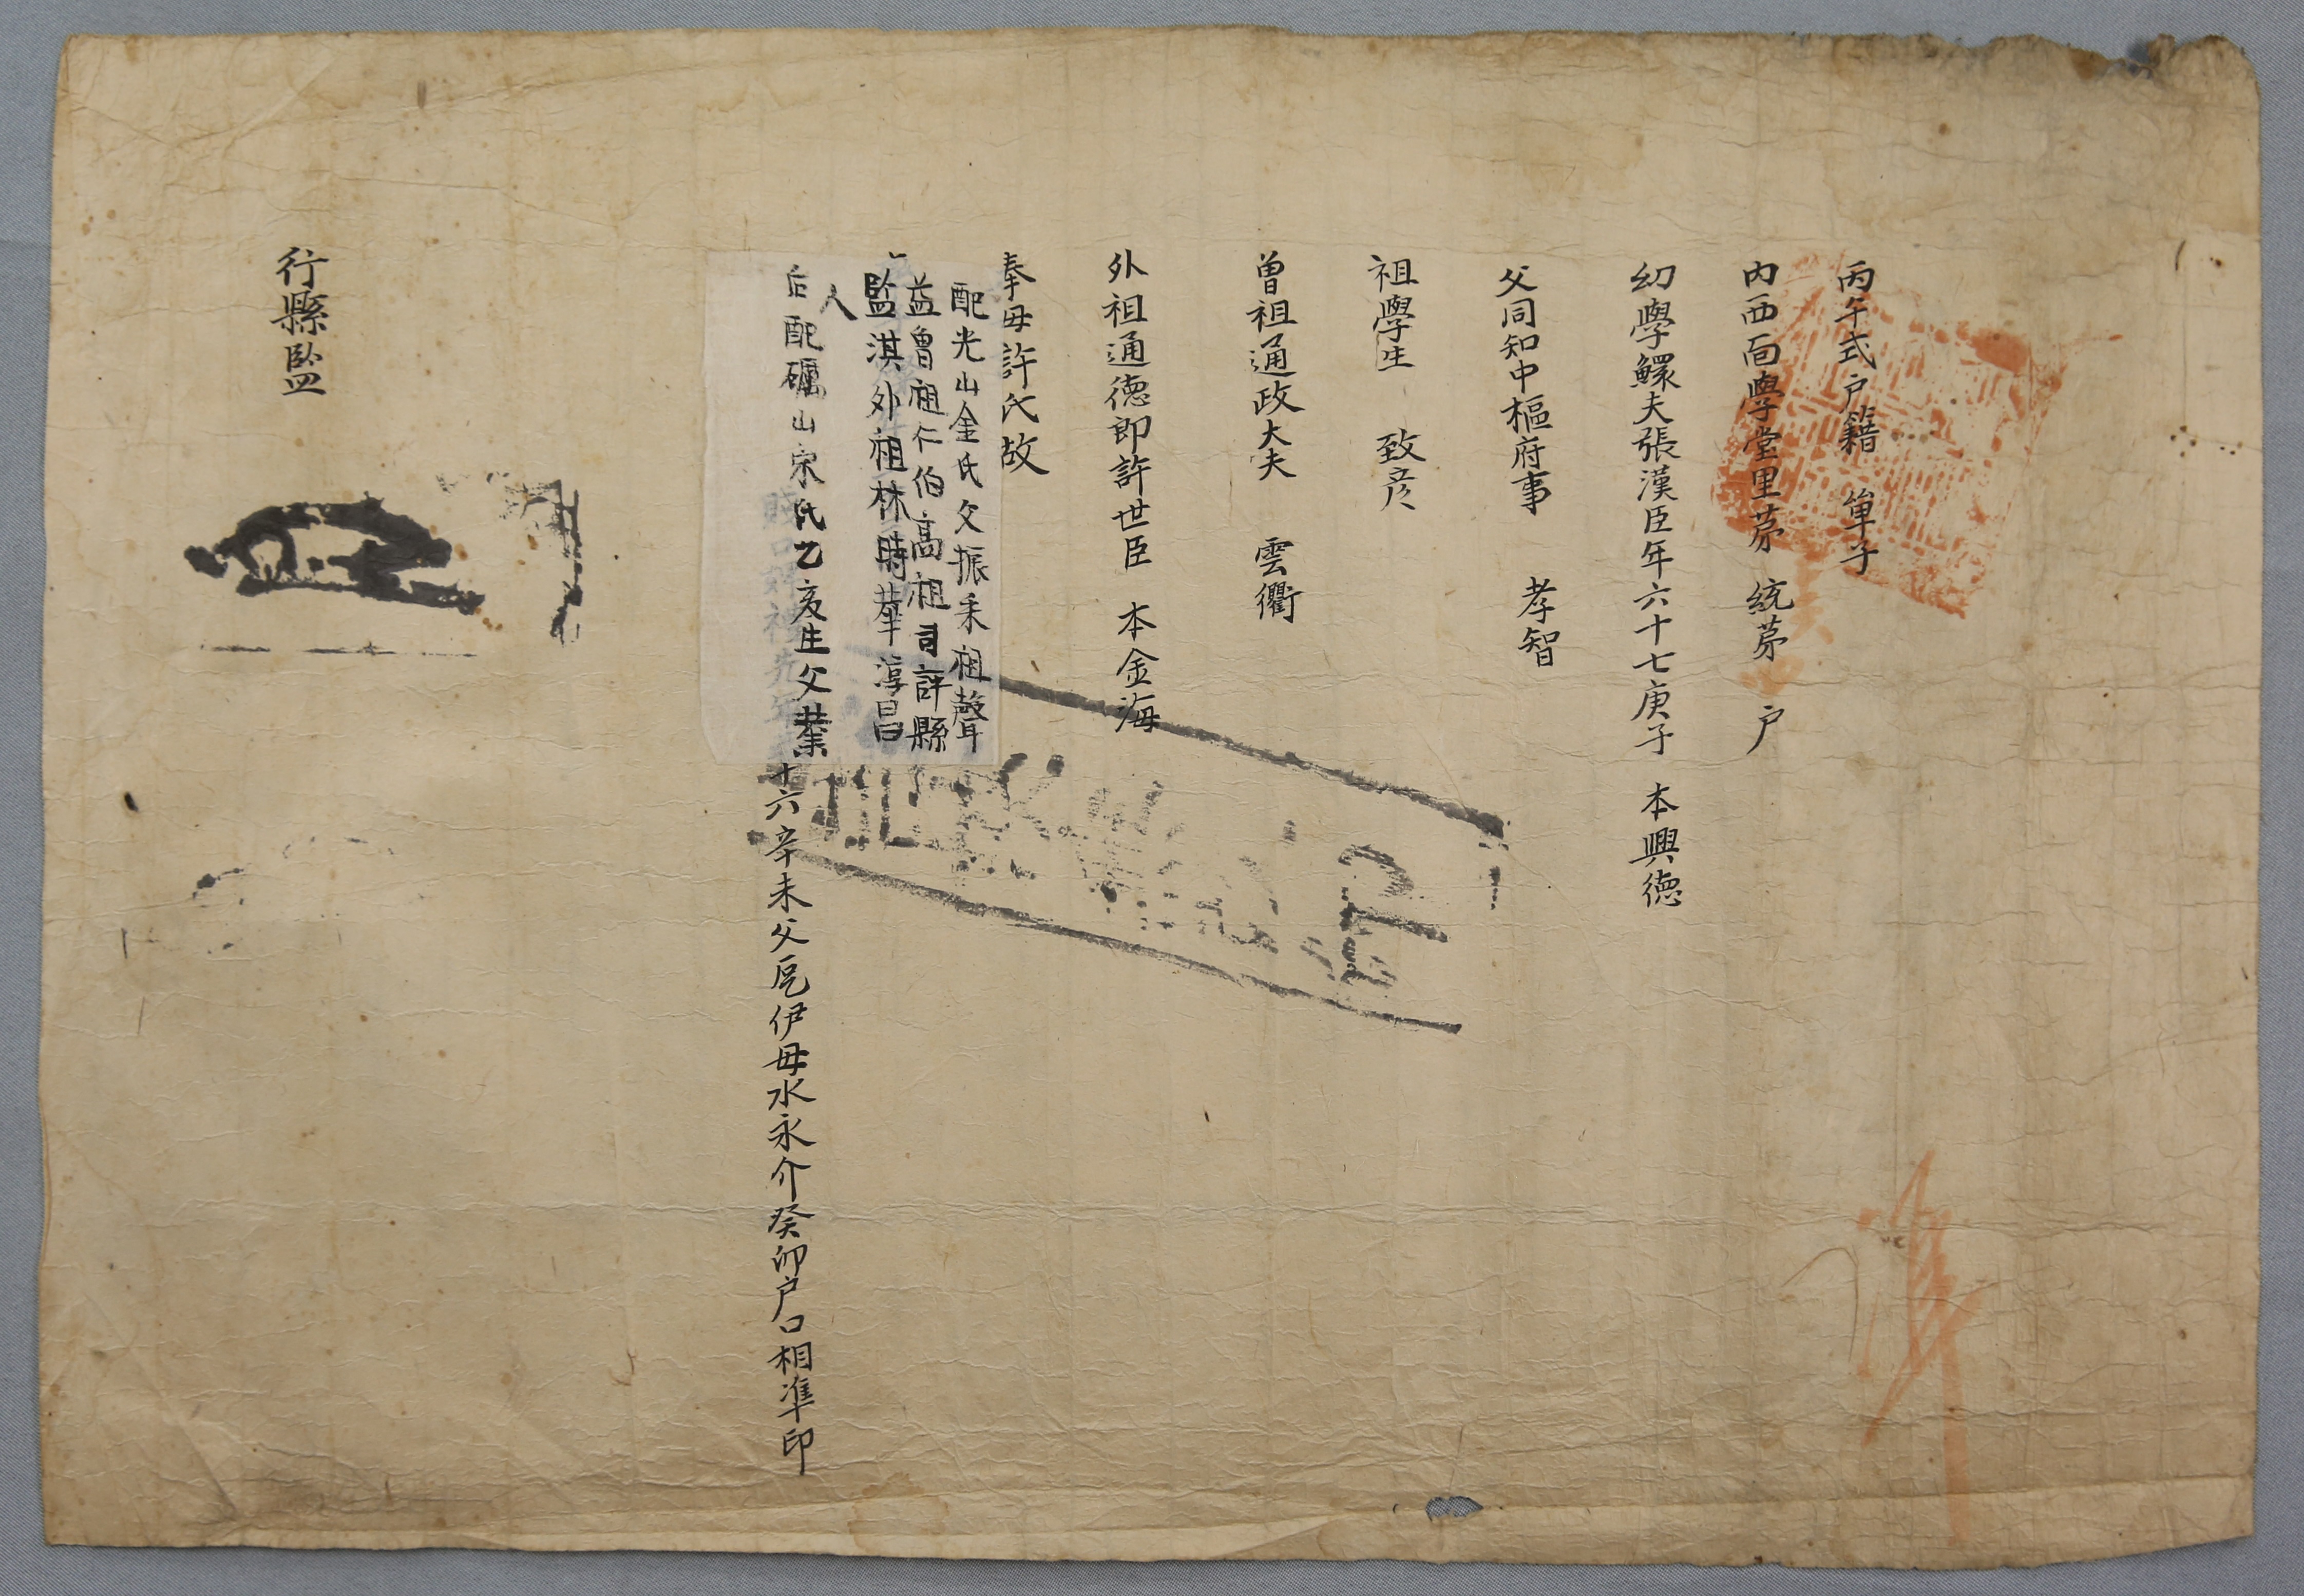 丙午式户籍 單子
内西面學堂里苐 統苐 户
幼學鰥夫張漢臣年六十七庚子 本興德
父同知中樞府事 孝智
祖學生 致彦
曾祖通政大夫 雲衢
外祖通德郎許世臣 本金海
奉母許氏故
配光山金氏父振秉祖聲
益曾祖仁伯高祖司評縣
監淇外祖林時華淳昌
人
后配礪山宋氏乙亥生父㸁
十六辛未父戹伊母水永介癸卯户口相準印
行縣監
準